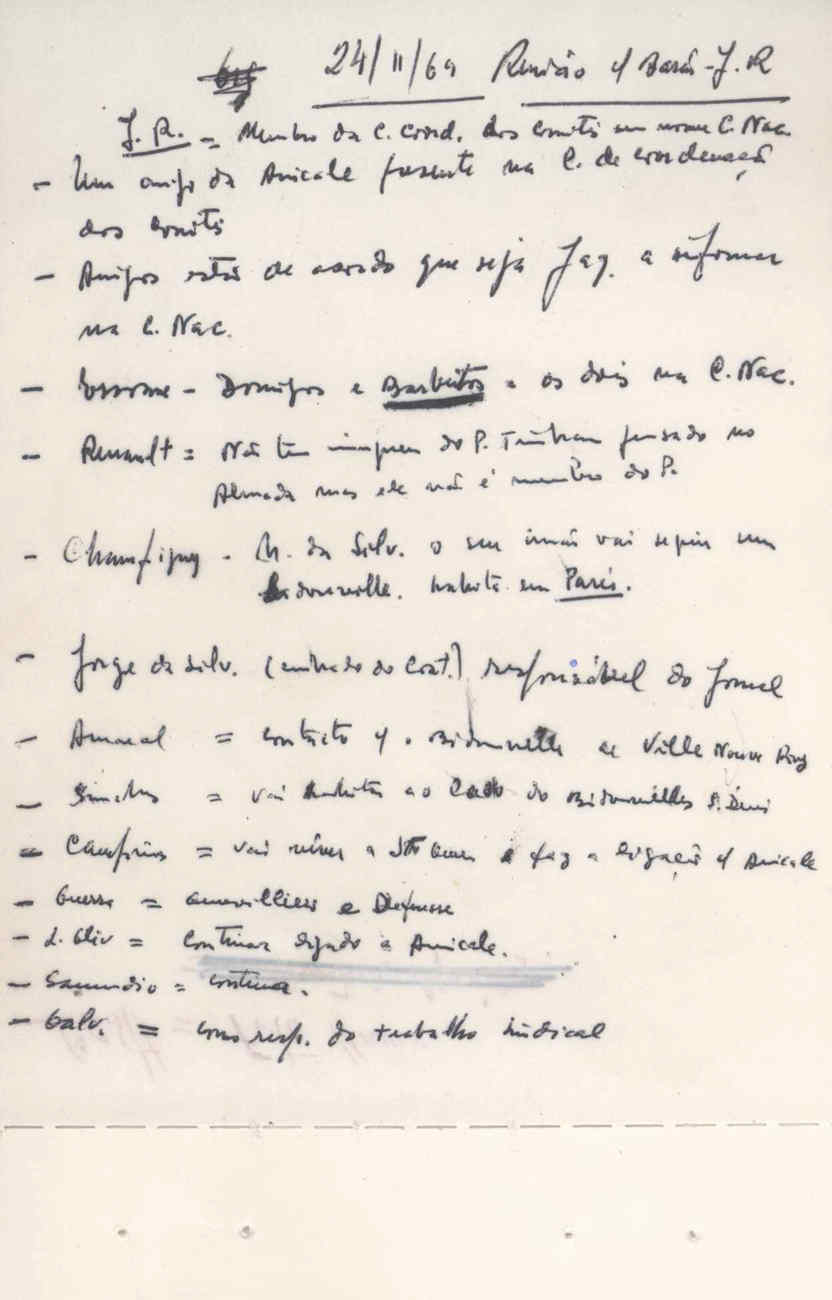 24/11/69 Reunião c/ Basás - J. R
J. R. = Membro da C. Coord. dos Comités em nome C. Nac.
- Um amigo da Amicale presente na C. de coordenação
dos Comités
- Amigos estão de acordo que seja Jaq. a informar
na C. Nac.
- Essonne - Domingos e Barbeitos = os dois na C. Nac.
- Renault = Não tem ninguém do P. Tinham pensado no
Almada mas ele não é membro do P.
- Champigny - M. da Silv. o seu irmão vai seguir um
Bidonville. habita em Paris.
- Jorge da Silv. (cunhado do Cost.) responsável do Jornal
- Amaral = contacto c/ o Bidonville de Ville Nouve
- = vai habitar ao lado do Bidonvilles S. Denis
- = vai viver a e faz a ligação c/ Amicale
- Guerra = Genevilliers e Defense
- L. Oliv = Continuar ligado à Amicale.
- = continua.
- Galv. = como resp. do trabalho sindical